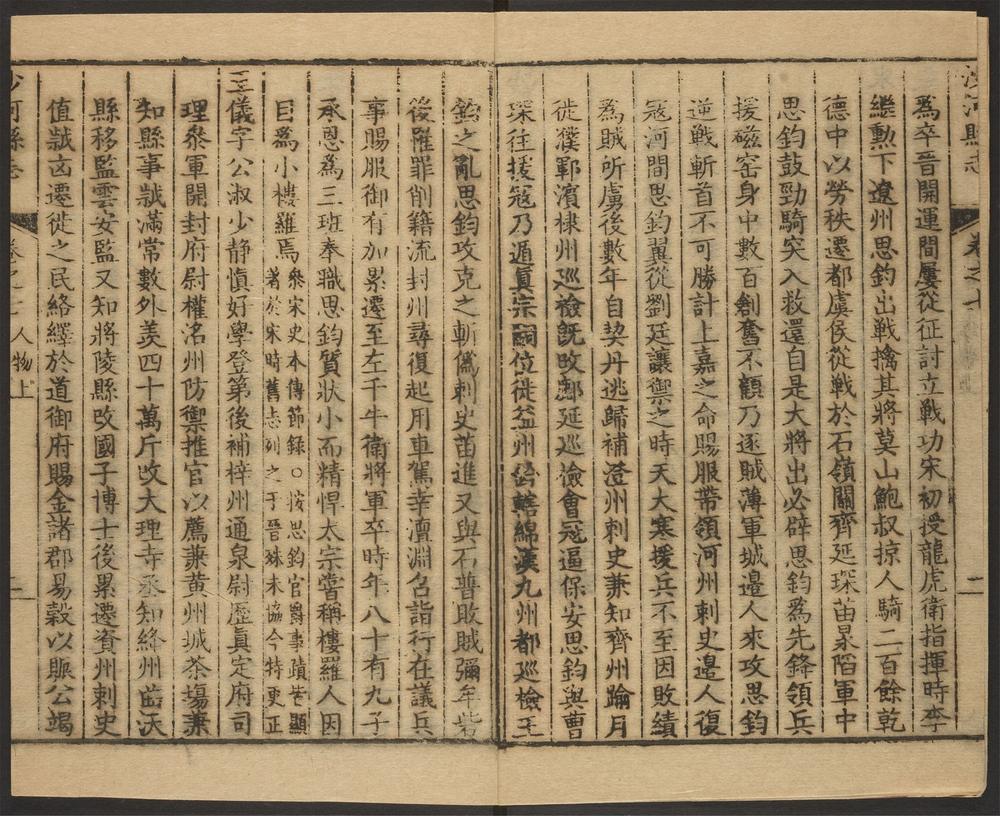 沙河縣志
卷之七
二
為卒晉開運間屢從征討立戰功宋初授龍虎衛指揮時李
繼勲下遼州思鈞出戰擒其將莫山鮑叔掠人騎二百餘乾
德中以勞秩遷都虞侯從戰於石嶺關齊延琛苗杲陷軍中
思鈞鼓勁騎突入救還自是大將出必辟思鈞為先鋒領兵
援磁窑身中數百創奮不顧乃逐賊薄軍城邉人來攻思鈞
逆戰斬首不可勝計上嘉之命賜服帶領河州刺史邉人復
冦河間思鈞翼從劉廷讓禦之時天大寒援兵不至因敗績
為賊所虜後數年自契丹逃歸補澄州刺史兼知齊州踰月
徙濮鄆濵棣州巡檢旣改鄜延巡檢會冦逼保安思鈞與曹
琛往援冦乃遁眞宗嗣位徙益州公轄綿漢九州都巡檢王
鈞之亂思鈞攻克之斬僞刺史苗進又與石普敗賊彌牟砦
後罹罪削籍流封州尋復起用車駕幸澶淵召詣行在議兵
事賜服御有加累遷至左千牛衛將軍卒時年八十有九子
承恩為三班奉職思鈞質狀小而精悍太宗嘗稱樓羅人因
目為小樓羅焉
叅宋史本傳節録○按思鈞官爵事蹟皆顯
著於宋時舊志列之于晉殊未協今特更正
王儀字公淑少静慎好學登第後補梓州通泉尉歷眞定府司
理叅軍開封府尉權洺州防禦推官以薦兼黄州城茶塲兼
知縣事誠滿常數外羨四十萬斤改大理寺丞知絳州翼沃
縣移監雲安監又知將陵縣改國子博士後累遷資州刺史
值歲凶遷徙之民絡繹於道御府賜金諸郡易穀以賑公竭
沙河縣志
卷之七
人物上
二